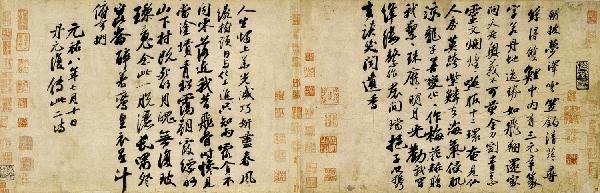 朝披夢澤雲笠釣青茫茫尋
絲得雙鯉中有三元章篆
字若丹蛇逸勢如飛翔還家
問天老奧義不可量金刀割青素
靈文爛煌煌咽服十二環奄見仙
人房暮跨紫鱗去海氣侵肌
涼龍子善變化化作梅花妝贈
我纍纍珠靡靡明月光勸我穿
絳縷繫作裙間襠挹子以攜
去談笑聞遺香
人生燭上花光滅巧妍盡春風
繞樹頭日與化工進只知雨露貪不
聞零落近我昔飛骨時慘見
當塗墳青松靄朝霞縹緲
山下村既死明月魄無復玻
璃魂念此一脫灑長嘯祭
崑崙醉著鸞皇衣星斗
俯可捫
元祐八年七月十日
丹元復傳此二詩